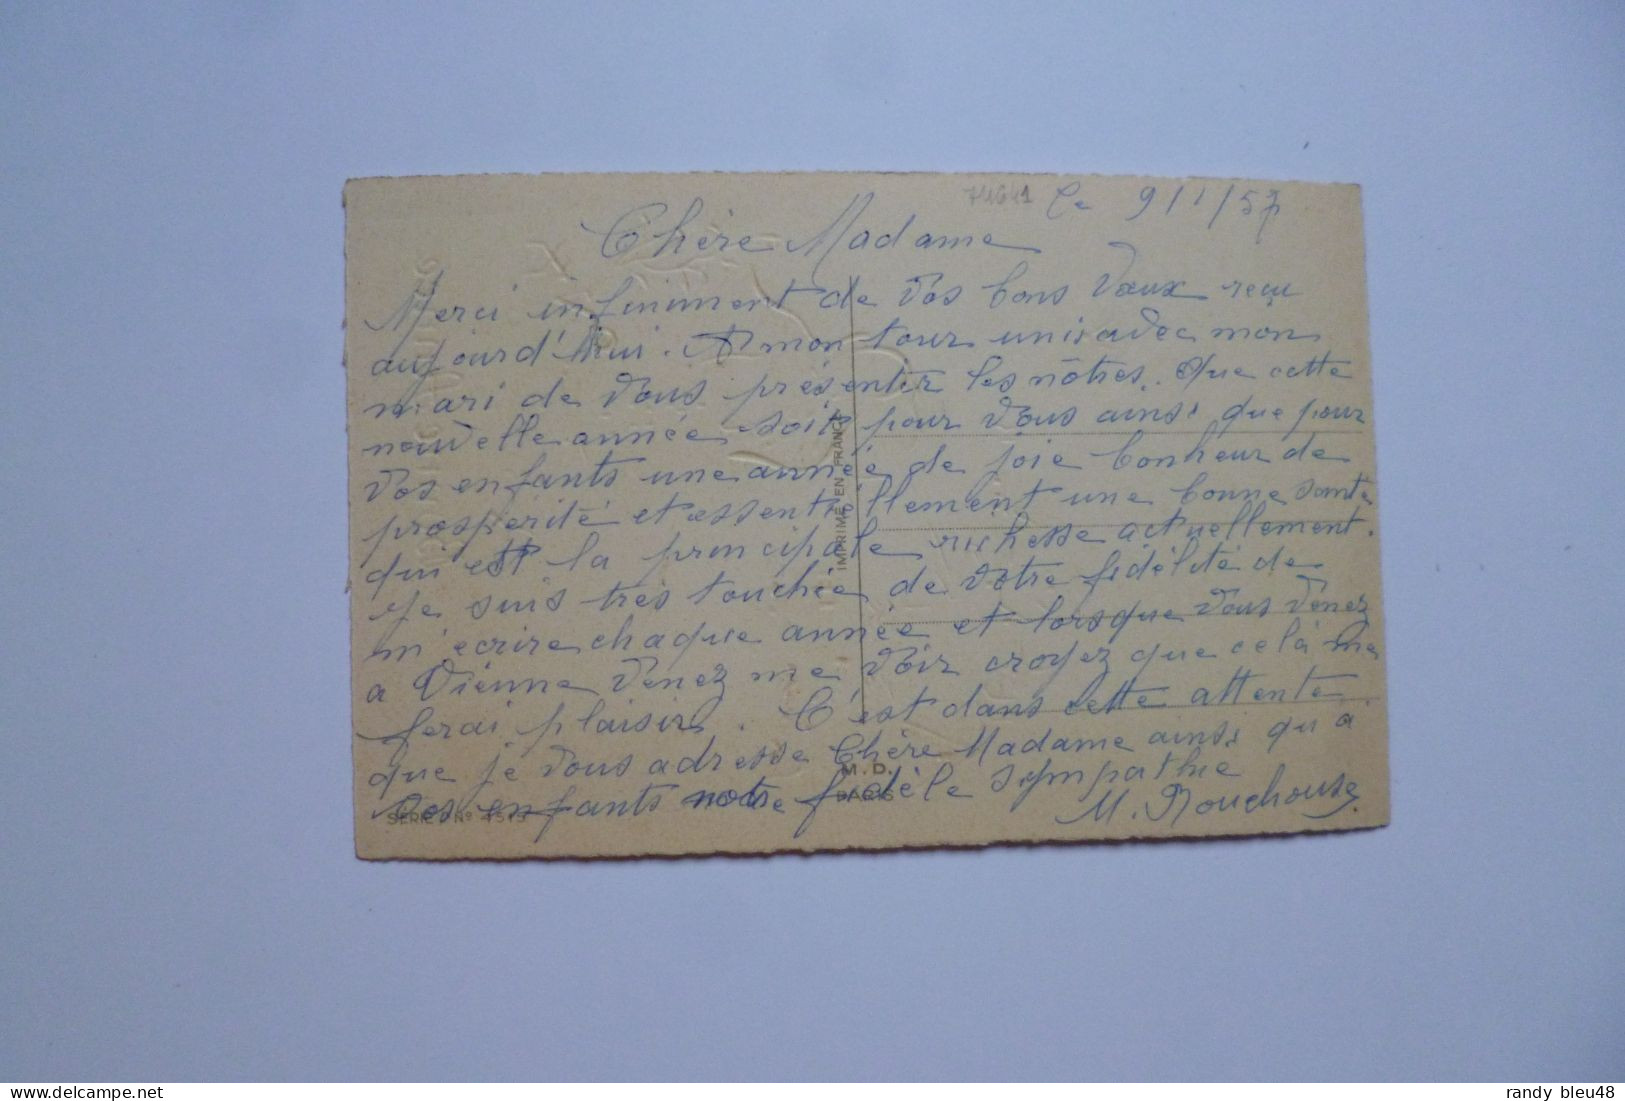 74641 Le 9/1/57
Chère Madame
Merci infiniment de vos bons vœux reçu
aujourd'hui. A mon tour unis avec mon
mari de vous présenter les nôtres. Que cette
nouvelle année soit pour vous ainsi que pour
vos enfants une année de joie bonheur de
prosperité et essentiellement une bonne sante
qui est la principale richesse actuellement.
Je suis très touchée de votre fidélité de
m'ecrire chaque année et lorsque vous venez
a Vienne venez me voir croyez que celà me
ferai plaisir. C'est dans cette attente
que je vous adresse Chère Madame ainsi qu'à
vos enfants notre fidèle sympathie
M. Rouchouse.
IMPRIMÉ EN FRANCE
M. D.
PARIS
SERIE N° 1515
randy bleu48